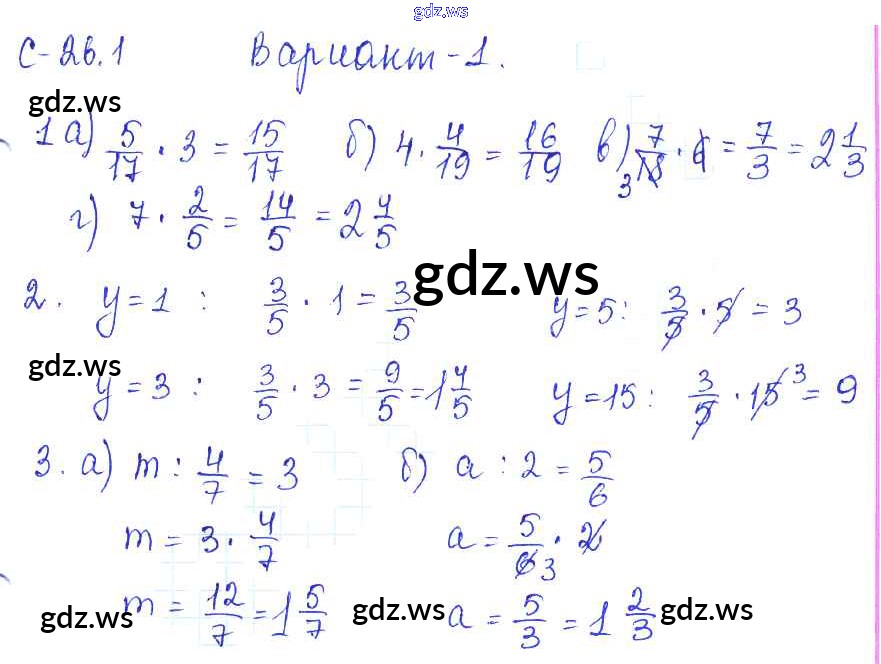 gdz.ws
С-26.1 Вариант-1.
gdz.ws
1 а) 5/17 · 3 = 15/17 б) 4 · 4/19 = 16/19 в) 7/18 3 · 6 = 7/3 = 2 1/3
г) 7 · 2/5 = 14/5 = 2 4/5
gdz.ws
2. y = 1 : 3/5 · 1 = 3/5 y = 5 : 3/5 · 5 = 3
gdz.ws
y = 3 : 3/5 · 3 = 9/5 = 1 4/5 y = 15 : 3/5 · 15 3 = 9
3. а) m : 4/7 = 3 б) a : 2 = 5/6
m = 3 · 4/7 a = 5/6 3 · 2
m = 12/7 = 1 5/7 a = 5/3 = 1 2/3
gdz.ws gdz.ws gdz.ws